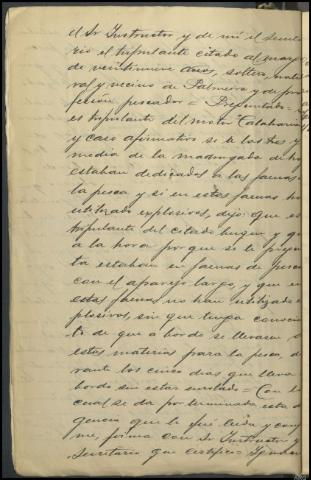 el Sr Instructor y de mi el Secreta
rio el tripulante citado al margen
de veintinueve años, soltero, natu
ral y vecino de Palmeira y de pro
fesion pescador = Preguntado =
es tripulante del motor
y caso afirmativo si a las tres y
media de la madrugada de hoy
estaban dedicados a las faenas
la pesca y si en estas faenas ha
utilizado explosivos, dijo: que es
tripulante del citado buque y que
a la hora por que se le pregun
ta estaban en faenas de pesca
con el aparejo largo, y que en
estas faenas no han utilizado e
plosivos, sin que tenga conocimien
to de que a bordo se llevaran
estas materias para la pesca, du
rante los cinco dias que lleva
bordo sin estar enrolado = Con lo
cual se da por terminada esta di
gencia que le fué leida y confor
me, firma con Sr Instructor y
Secretario que certifico